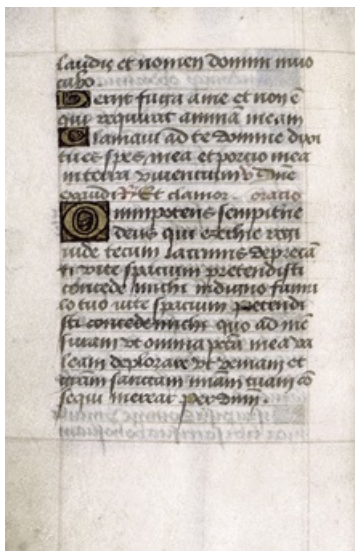 laudis et nomen domini invo
cabo
Periit fuga a me et non ē
qui requirat animā meam
Clamavi ad te domine dixi
tu es spes mea et porcio mea
in terra viventium v̄ dn̄e
exaudi R̄ Et clamor oratio
Omnipotens sempitne
deus qui ezechie regi
iude tecum lacrimis deprecā
ti vite spacium pretendisti
concede michi indigno famu
lo tuo vite spacium pretendi
sti concede michi quo ad mē
suram ut omnia pctā mea va
leam deplorare ut veniam et
grām sanctam miam tuam cō
sequi merear per dnm.